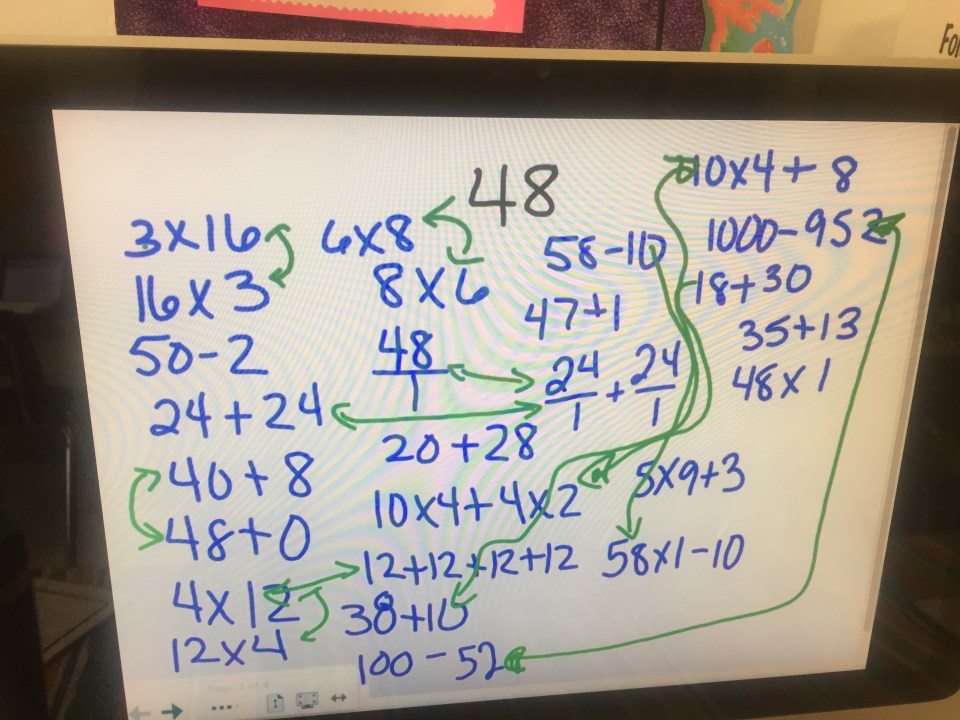 48
3x16
16x3
50-2
24+24
40+8
48+0
4x12
12x4
6x8
8x6
48/1
20+28
10x4+4x2
12+12+12+12
38+10
100-52
58-10
47+1
24/1 + 24/1
10x4+8
1000-952
18+30
35+13
48x1
5x9+3
58x1-10